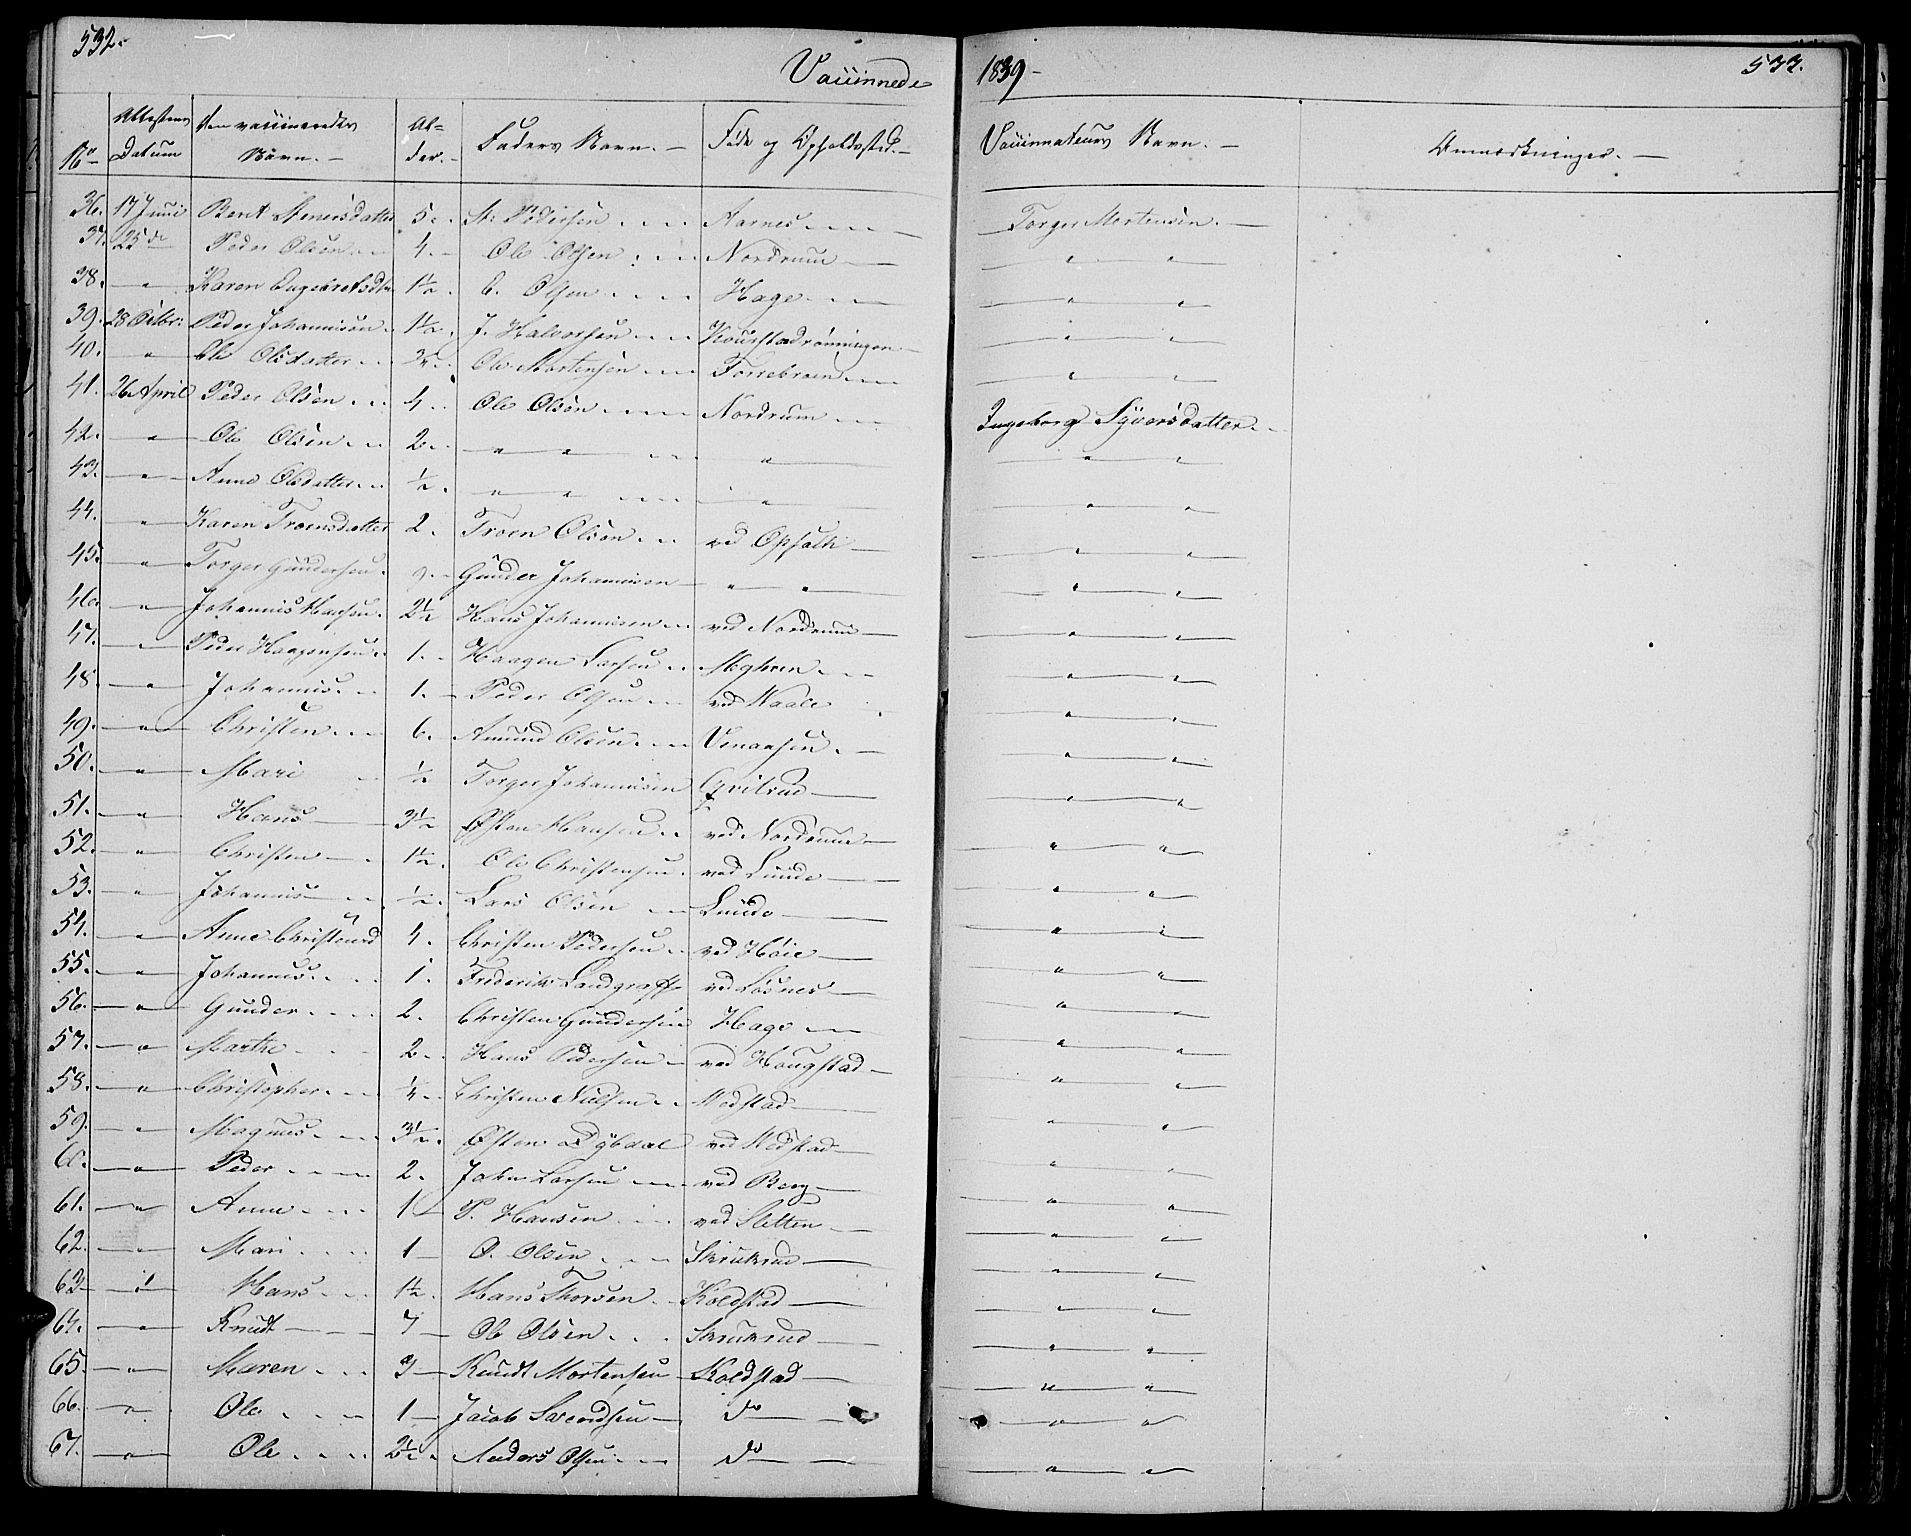 532.
Vaccinnede
1839
533.
No Attestens Datum den vaccineredes Navn. Alder. Faders Navn. Føde og Opholdssted. Vaccinnateurs Navn. Anmærkninger.
36. 17 Juni Berit Stenersdatter 5. St: Pedersen Aarnes Torger Mortensen
37. 25 de Peder Olsen 4. Ole Olsen Nordrum " "
38. " Karen Engebretsdtr 1½ E. Olsen Hage " "
39. 28 Octbr: Peder Johannesen 1½. J. Halvorsen " "
40. " Ole Olsdatter Ole Mortensen " "
41. 26 April Peder Olsen 4. Ole Olsen Nordrum Ingeborg Syversdatter
42. " Ole Olsen 2. " " " " "
43. " Anne Olsdatter ½. " " " " "
44. " Karen Troensdatter 2. Troen Olsen ved Opsath " "
45. " Torger Gundersen Gunder Johannesen " " " "
46. " Johannes Hansen 2½ Hans Johannesen ved Nordrum " "
47. " Peder Haagensen 1. Haagen Larsen " "
48. " Johannes 1. Peder Olsen " "
49. " Christen 6. Amund Olsen " "
50. " Mari ½ Torger Johannesen " "
51. " Hans 3½ Østen Hansen ved Nordrum " "
52. " Christen 1½. Ole Christensen ved Lunde " "
53. " Johannes ½. Lars Olsen Lunde " "
54. " Anne Christensd 4. Christen Pedersen ved Høie " "
55. " Johannes 1. Frederik Landgraff ved Løsnes " "
56. " Gunder 2. Christen Gundersen Hage " "
57. " Marthe 2. Hans Pedersen ved Hougstad " "
58. " Christopher ¼. Christen Nielsen " "
59. " Magnus 3½. Østen Dybdal " "
60. " Peder 2. John Larsen ved Berg " "
61. " Anne 1 P. Hansen ved Sletten " "
62. " Mari 1 O. Olsen Skrukrud " "
63 " Hans 1½. Hans Thorsen Koldstad " "
64. " Knudt 7 Ole Olsen Skrukrud " "
65. " Maren Knudt Mortensen Koldstad " "
66. " Ole 1 Jacob Svendsen do " "
67. " Ole 2½. Anders Olsen do " "